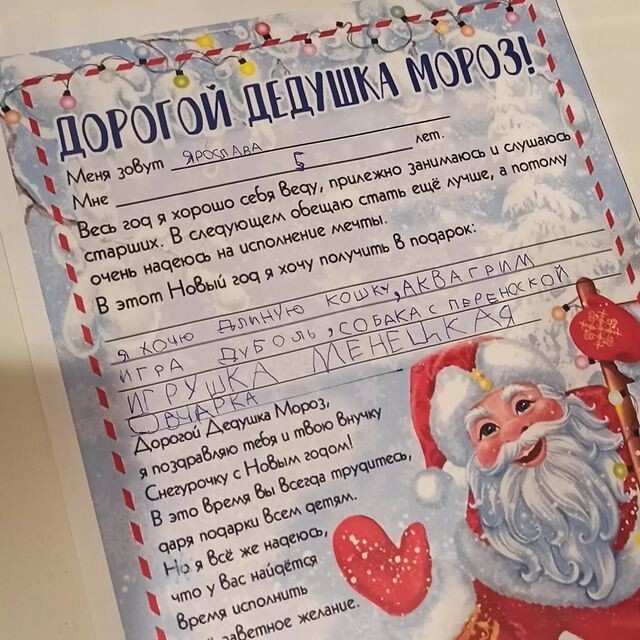 ДОРОГОЙ ДЕДУШКА МОРОЗ!
Меня зовут ЯРОСЛАВА
Мне 5 лет.
Весь год я хорошо себя веду, прилежно занимаюсь и слушаюсь
старших. В следующем обещаю стать ещё лучше, а потому
очень надеюсь на исполнение мечты.
В этот Новый год я хочу получить в подарок:
Я ХОЧУ ДЛИНУЮ КОШКУ, АКВАГРИМ
ИГРА ДУБОЛЬ, СОБАКА С ПЕРЕНОСКОЙ
ИГРУШКА МЕНЕЦКАЯ
ОВЧАРКА
Дорогой Дедушка Мороз,
я поздравляю тебя и твою внучку
Снегурочку с Новым годом!
В это время Вы всегда трудитесь,
даря подарки всем детям.
Но я всё же надеюсь,
что у Вас найдётся
время исполнить
заветное желание.